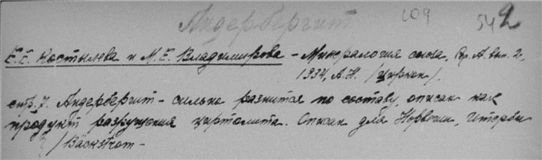 Андербергит 209 542
Е.Е. Костылева и М.Е. Владимирова - Минералогия союза, Сер. А. вып. 2,
1934, А.Н. (циркон).
стр. 7. Андербергит - сильно разнится по составу, описан как
продукт разрушения циртолита. Описан для Норвегии, Иттерби